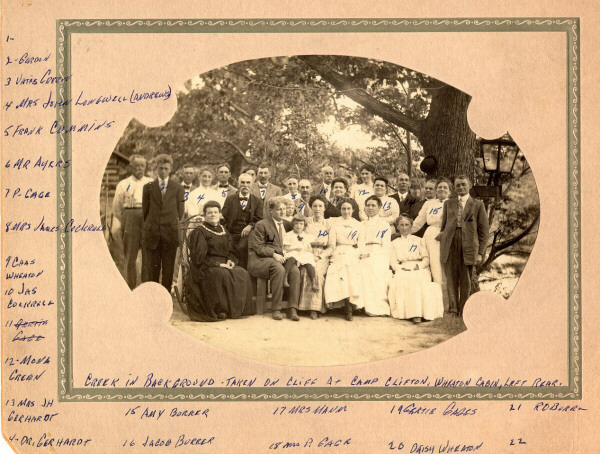 1-
2- GORDIN
3 VATES
4 MRS JOHN LONGWELL (ANDREWS)
5 FRANK CUMMINS
6 MR AYERS
7 P- GAGE
8 MRS JAMES COCKRELL
9 CHAS
WHEATON
10 JAS
COCKRELL
11 GERTIE
GAGE
12- MONA
CREAN
13 MRS. JH
GERHARDT
4- DR. GERHARDT
CREEK IN BACKGROUND - TAKEN ON CLIFF AT CAMP CLIFTON, WHEATON CABIN, LEFT REAR.
15 AMY BURRER
16 JACOB BURRER
17 MRS
18 MRS P. GAGE
19 GERTIE GAGES
20 DAISY WHEATON
21 RD BURRER
22